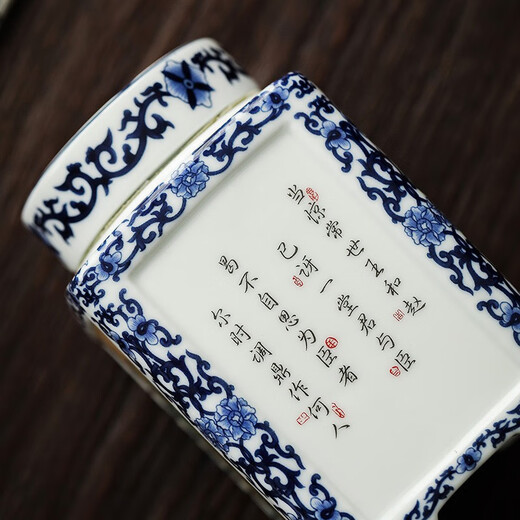 当惊常世王和赵
已讶一堂君与臣
曷不自思为臣者
尔时调鼎作何人